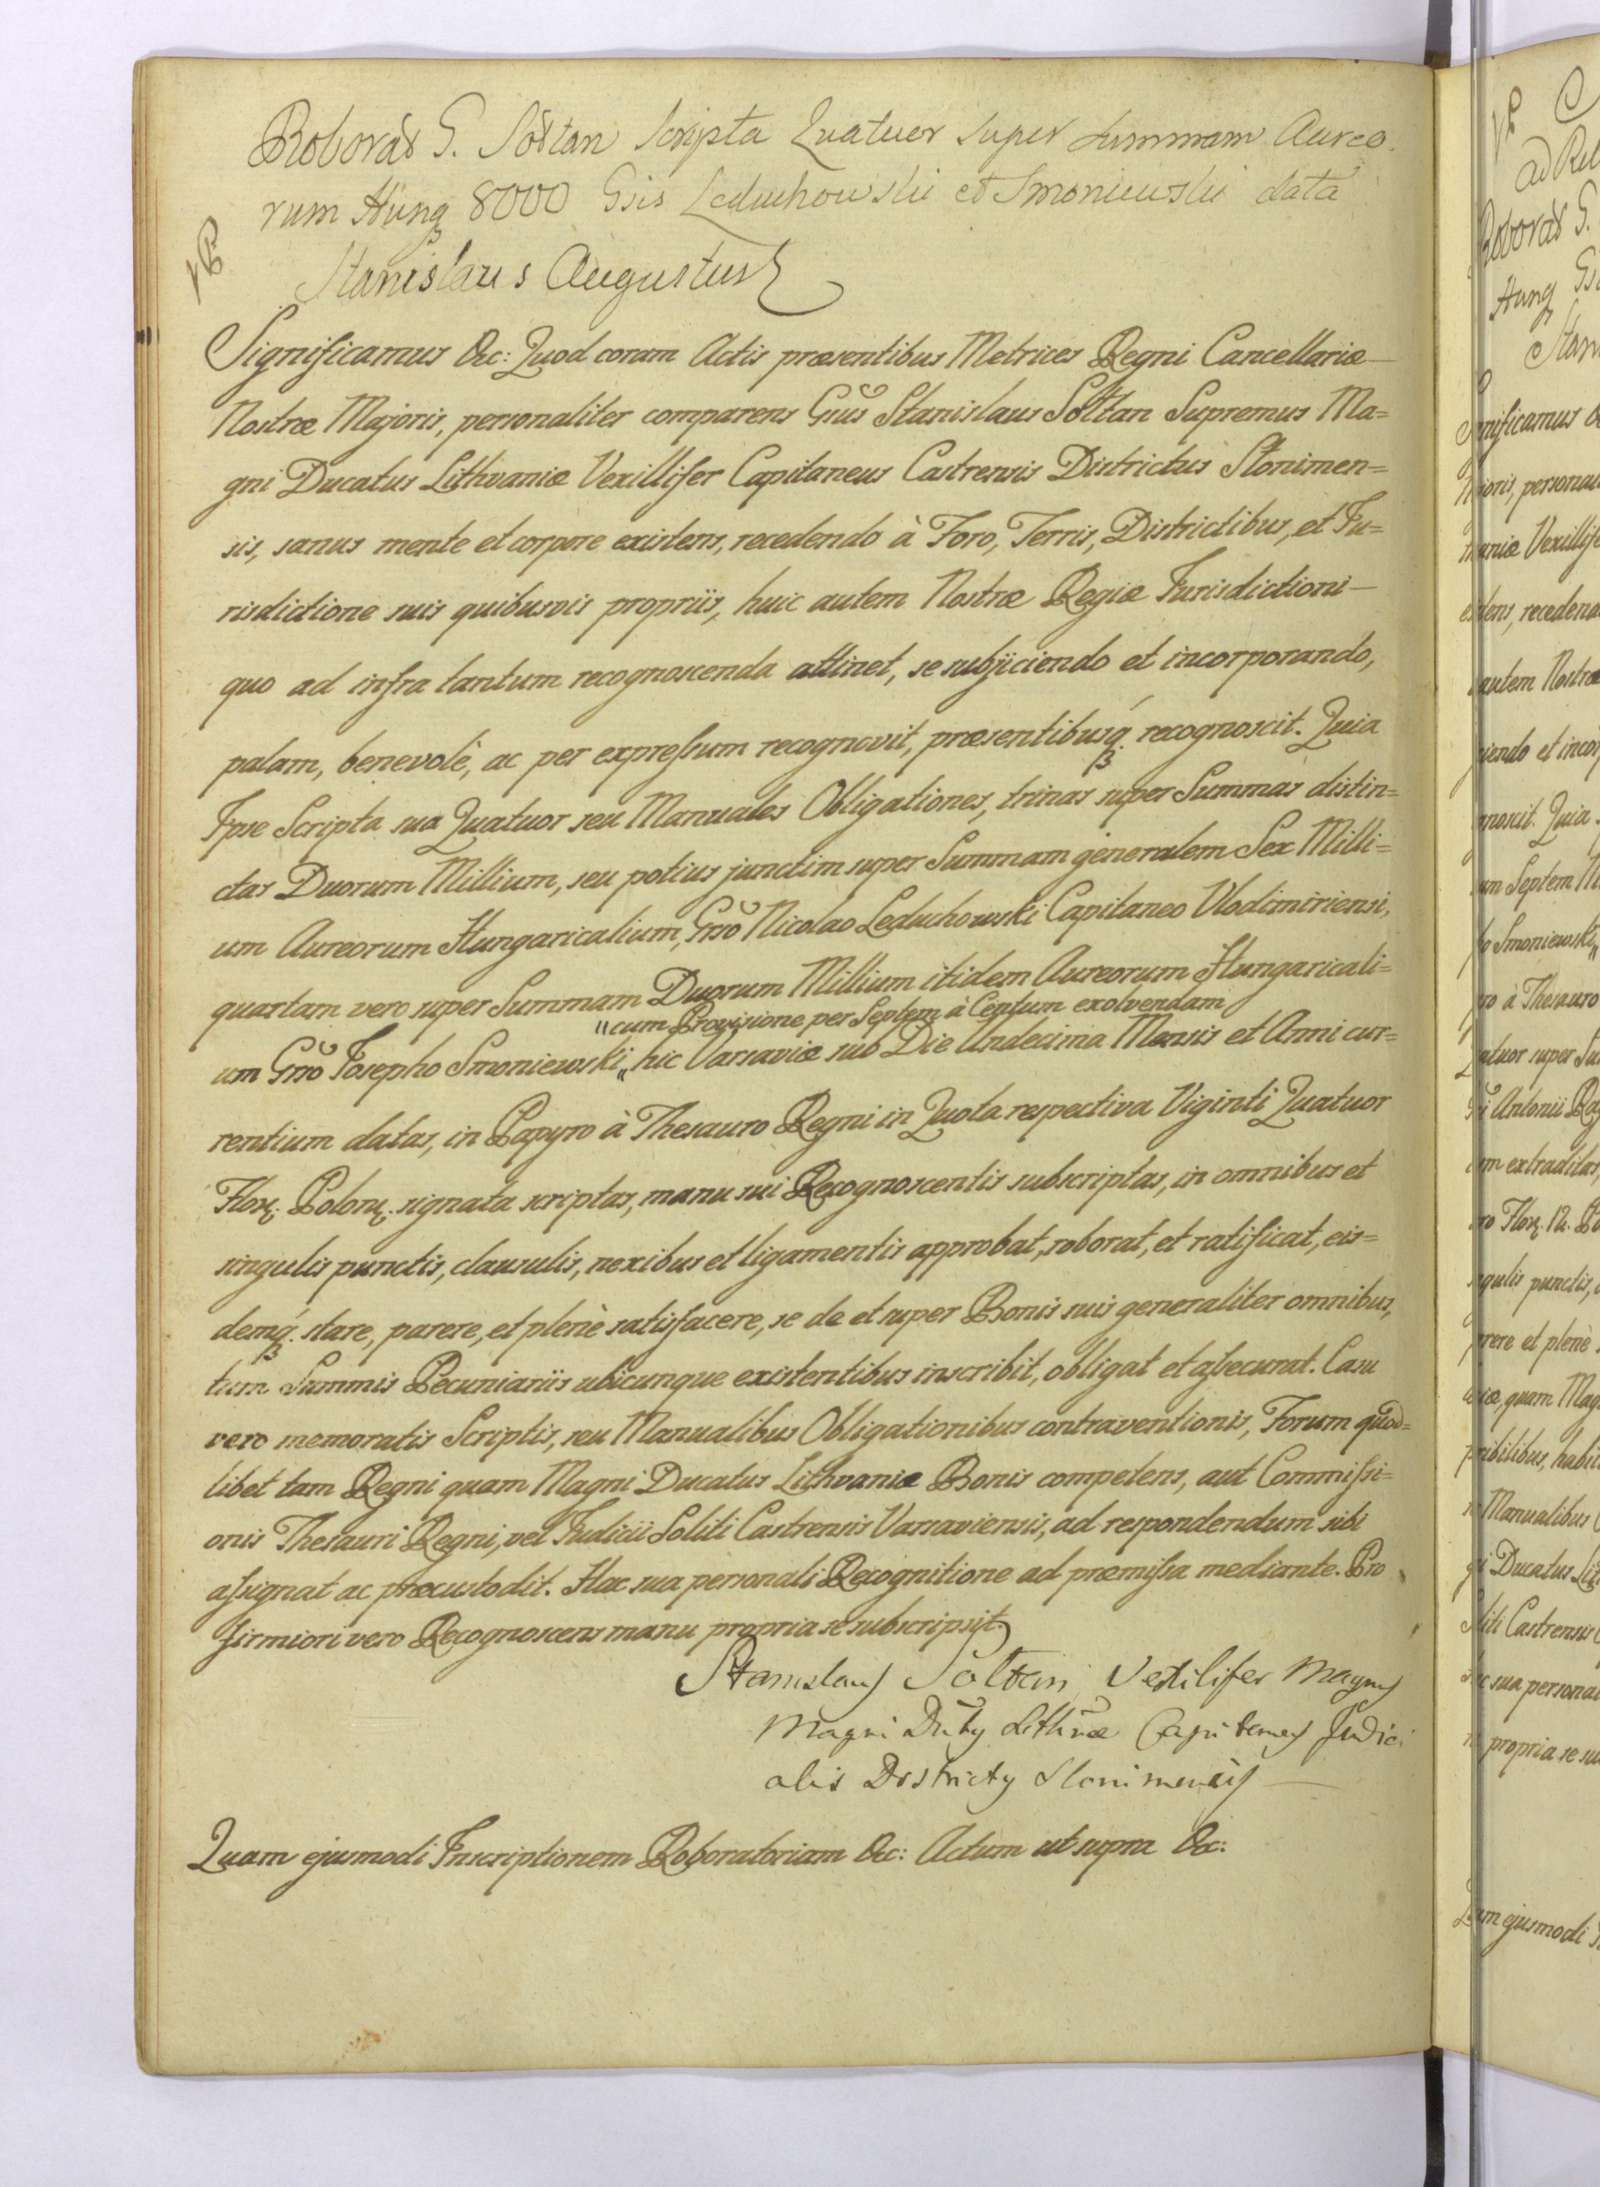 Roborat G. Sołtan Scripta Quatuor super Summam Aureo-
rum Hung 8000 Gsis Leduchowski et Smoniewski data
Stanislaus Augustus
Significamus &c: Quod coram Actis præsentibus Metrices Regni Cancellariæ
Nostræ Majoris, personaliter comparens Gnus Stanislaus Sołtan Supremus Ma=
gni Ducatus Lithvaniæ Vexillifer Capitaneus Castrensis Districtus Słonimen=
sis, sanus mente et corpore existens, recedendo à Foro, Terris, Districtibus, et Ju=
risdictione suis quibusvis propriis, huic autem Nostræ Regiæ Jurisdictioni
quo ad infra tantum recognoscenda attinet, se subjiciendo et incorporando,
palam, benevolè, ac per expressum recognovit, præsentibusq. recognoscit. Quia
Ipse Scripta sua Quatuor seu Manuales Obligationes, trinas super Summas distin=
ctas Duorum Millium, seu potius junctim super Summam generalem Sex Milli=
um Aureorum Hungaricalium, Gnro Nicolao Leduchowski Capitaneo Vlodimiriensi,
quartam vero super Summam Duorum Millium itidem Aureorum Hungaricali=
"cum Provisione per Septem à Centum exolvendam
um Gnro Josepho Smoniewski," hic Varsaviæ sub Die Undecima Mensis et Anni cur=
rentium datas, in Papyro à Thesauro Regni in Quota respectiva Viginti Quatuor
Flor. Polon. signata scriptas, manu sui Recognoscentis subscriptas, in omnibus et
singulis punctis, clausulis, nexibus et ligamentis approbat, roborat, et ratificat, eis=
demq. stare, parere, et plenè satisfacere, se de et super Bonis suis generaliter omnibus,
tum Summis Pecuniariis ubicunque existentibus inscribit, obligat et assecurat. Casu
vero memoratis Scriptis, seu Manualibus Obligationibus contraventionis, Forum quod=
libet tam Regni quam Magni Ducatus Lithvaniæ Bonis competens, aut Commissi=
onis Thesauri Regni, vel Judicii Soliti Castrensis Varsaviensis, ad respondendum sibi
assignat ac præcustodit. Hac sua personali Recognitione ad præmissa mediante. Pro
firmiori vero Recognoscens manu propria se subscripsit.
Stanislaus Sołtan Vexilifer Magnus
Magni Duty Lithuæ Capitaneus Judici
alis Districty Słonimensis
Quam ejusmodi Inscriptionem Roboratoriam &c: Actum ut supra &c: